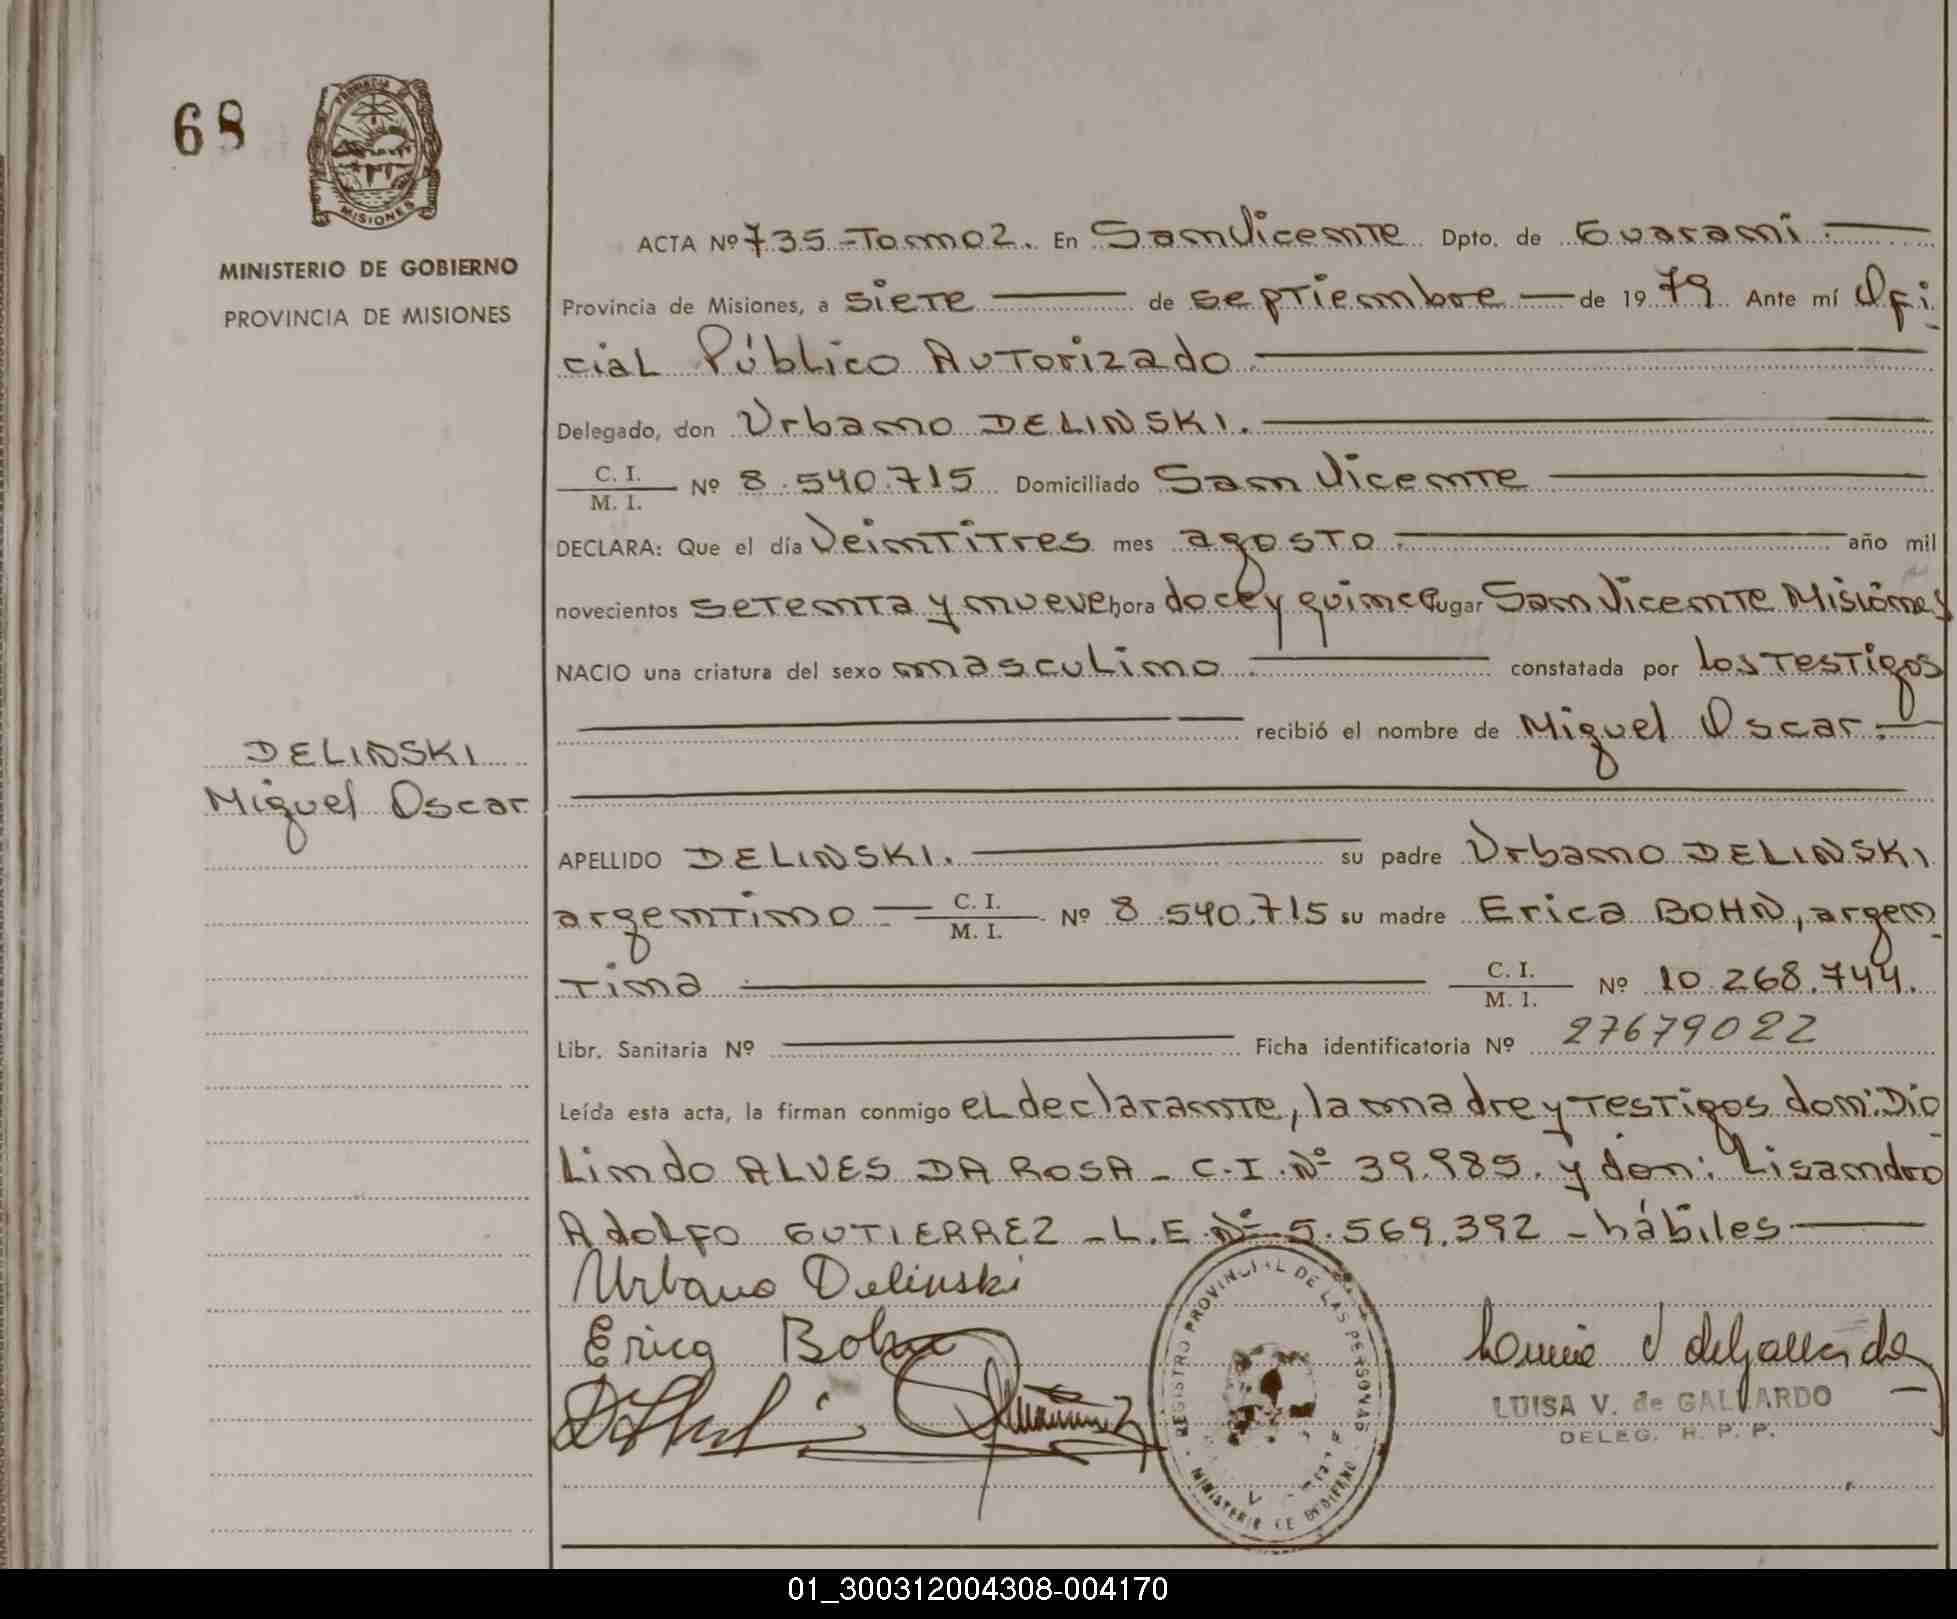 68
PROVINCIA
MISIONES
MINISTERIO DE GOBIERNO
PROVINCIA DE MISIONES
ACTA Nº 735 - Tomo 2. En San Vicente Dpto. de Guaraní.
Provincia de Misiones, a siete de septiembre de 1979 Ante mí Ofi
cial Público Autorizado.
Delegado, don Urbano DELINSKI.
C. I.
M. I. Nº 8.540.715 Domiciliado San Vicente
DECLARA: Que el día Veintitres mes agosto. año mil
novecientos setenta y nueve hora doce y quince lugar San Vicente Misiones
NACIO una criatura del sexo masculino. constatada por los testigos
recibió el nombre de Miguel Oscar.
DELINSKI
Miguel Oscar
APELLIDO DELINSKI. su padre Urbano DELINSKI
argentino C. I.
M. I. Nº 8.540.715 su madre Erica BOHN, argen
tina C. I.
M. I. Nº 10.268.744.
Libr. Sanitaria Nº Ficha identificatoria Nº 27679022
Leída esta acta, la firman conmigo el declarante, la madre y testigos don: Dio
lindo ALVES DA ROSA - C.I. Nº 39.985. y don: Lisandro
Adolfo GUTIERREZ - L.E Nº 5.569.392 - hábiles
Urbano Delinski
Erica Bohn
REGISTRO PROVINCIAL DE LAS PERSONAS
MINISTERIO DE GOBIERNO
LUISA V. de GALLARDO
DELEG. R. P. P.
01_300312004308-004170